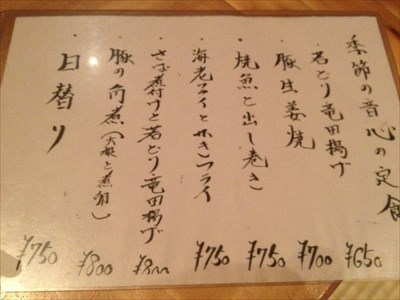 季節の音心の定食
・若どり竜田揚げ ¥650
・豚生姜焼 ¥700
・焼魚と出し巻き ¥750
・海老フライとホキフライ ¥750
・さば煮付けと若どり竜田揚げ ¥800
・豚の角煮(大根と煮卵) ¥800
・日替り ¥750